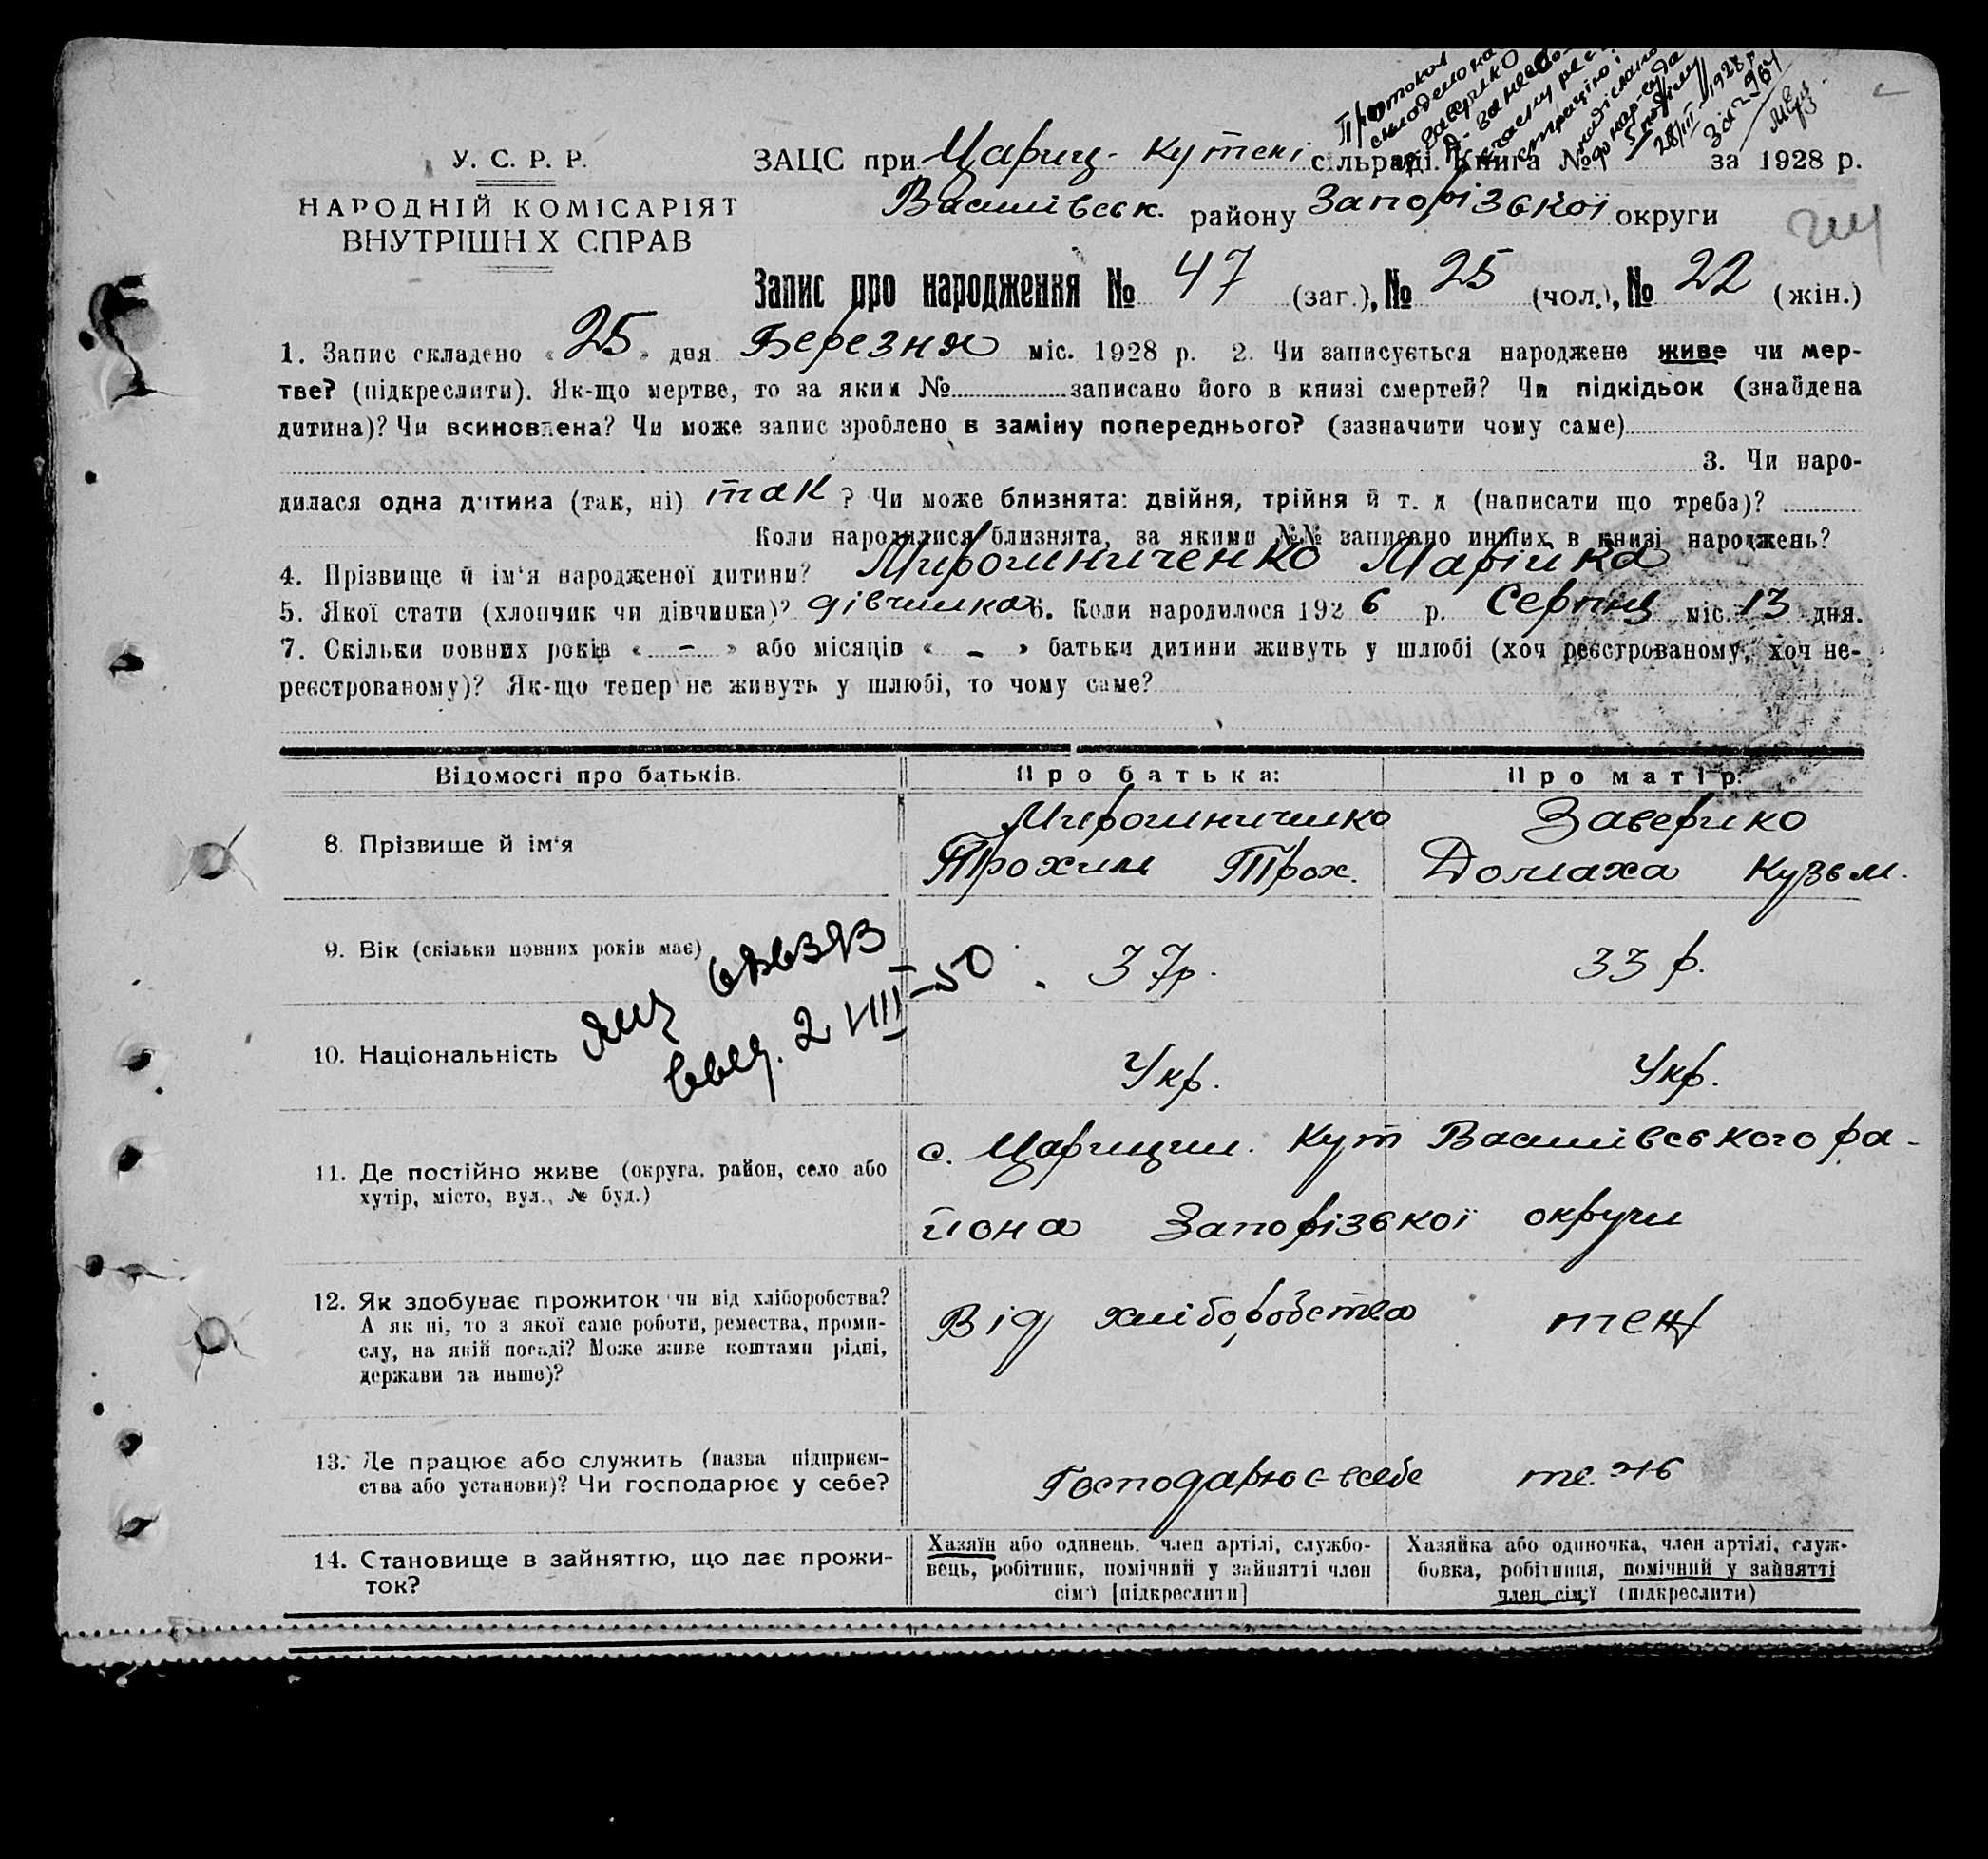 У. С. Р. Р.
НАРОДНІЙ КОМІСАРІЯТ
ВНУТРІШН Х СПРАВ
Протокол
складено на
за
1928 р.
ЗАЦС при Цариц-Кутскі сільраді. Книга № за 1928 р.
Василівськ. району Запорізької округи
Запис про народження № 47 (заг.), № 25 (чол.), № 22 (жін.)
1. Запис складено « 25 » дня Березня міс. 1928 р. 2. Чи записується народжене живе чи мер-
тве? (підкреслити). Як-що мертве, то за яким № записано його в книзі смертей? Чи підкідьок (знайдена
дитина)? Чи всиновлена? Чи може запис зроблено в заміну попереднього? (зазначити чому саме)
3. Чи наро-
дилася одна дитина (так, ні) так ? Чи може близнята: двійня, трійня й т. д (написати що треба)?
Коли народилися близнята, за якими №№ записано инших в книзі народжень?
4. Прізвище й ім'я народженої дитини? Мирошниченко Марійка
5. Якої стати (хлопчик чи дівчинка)? дівчинка 6. Коли народилося 1926 р. Серпня міс. 13 дня.
7. Скільки повних років « - » або місяців « - » батьки дитини живуть у шлюбі (хоч реєстрованому, хоч не-
реєстрованому)? Як-що тепер не живуть у шлюбі, то чому саме?
Відомості про батьків. Про батька: Про матір:
8. Прізвище й ім'я
Мирошниченко
Трохим Трох.
Заверико
Домаха Кузьм.
9. Вік (скільки повних років має)
37р.
33 р.
2 VIII-50
10. Національність
Укр.
Укр.
11. Де постійно живе (округа, район, село або
хутір, місто, вул., № буд.)
с. Царицин. Кут Василівського ра-
йона Запорізької округи
12. Як здобуває прожиток чи від хліборобства?
А як ні, то з якої саме роботи, ремества, проми-
слу, на якій посаді? Може живе коштами рідні,
держави та инше)?
Від хліборобства
теж
13. Де працює або служить (назва підприєм-
ства або установи)? Чи господарює у себе?
Господарює в себе
теж
14. Становище в зайняттю, що дає прожи-
ток?
Хазяїн або одинець, член артілі, службо-
вець, робітник, помічний у зайнятті член
сім'ї [підкреслити]
Хазяйка або одиночка, член артілі, служ-
бовка, робітниця, помічний у зайнятті
член сім'ї (підкреслити)